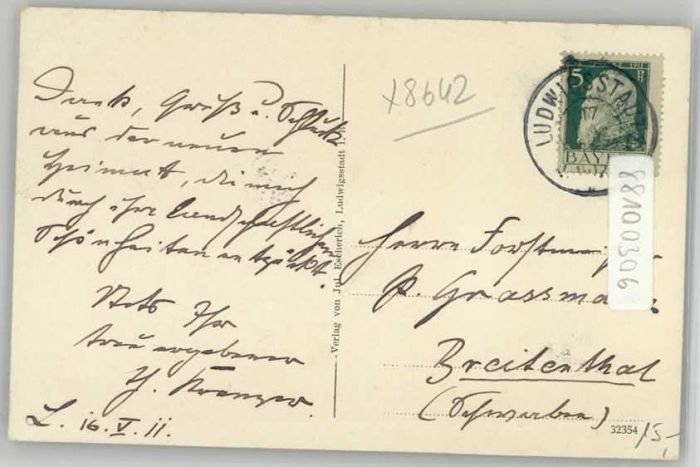 Dank, Gruß u. Schluck
aus der neuen
Heimat, die mich
durch ihre landschaftlichen
Schönheiten entzückt.
Stets Ihr
treu ergebener
L. 16. V. 11.
Verlag von Jul. Escherich, Ludwigsstadt
x8642
LUDWIGSSTADT
5 1911
BAYERN
88100306
Herrn Forstmeister
P. Grassmann
Breitenthal
(Schwaben)
32354
15,-